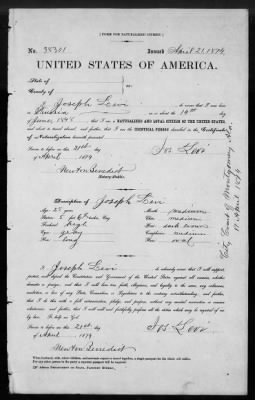 [FORM FOR NATURALIZED CITIZEN.]
No. 38311 Issued April 21, 1874
UNITED STATES OF AMERICA.
State of
County of
I, Joseph Levi do swear that I was born
in on or about the 14th day
of that I am a NATURALIZED AND LOYAL CITIZEN OF THE UNITED STATES,
and about to travel abroad, and further, that I am the IDENTICAL PERSON described in the Certificate
of Naturalization herewith presented.
Sworn to before me this 21st day
of April 1874
Jos Levi
Newton Benedict
Notary Public.
Description of Joseph Levi
Age: years Mouth: medium
Stature: feet inches, Eng. Chin: medium
Forehead: high Hair: dark brown
Eyes: gray Complexion: medium
Nose: long Face: oval
City Court of Montgomery Ala.
April 1874
I, Joseph Levi do solemnly swear that I will support,
protect, and defend the Constitution and Government of the United States against all enemies, whether
domestic or foreign; and that I will bear true faith, allegiance, and loyalty to the same, any ordinance,
resolution, or law of any State, Convention, or Legislature to the contrary notwithstanding; and further,
that I do this with a full determination, pledge, and purpose, without any mental reservation or evasion
whatsoever; and further, that I will well and faithfully perform all the duties which may be required of me
by law. So help me God.
Sworn to before me this 21st day
of April 1874
Jos Levi
Newton Benedict